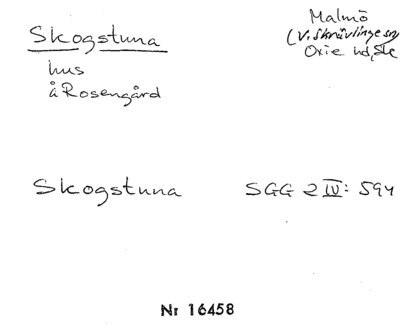 Skogstuna
hus
å Rosengård
Malmö
(V. Skrävlinge sn)
Oxie hd, Sk
Skogstuna SGG 2 IV: 594
Nr 16458